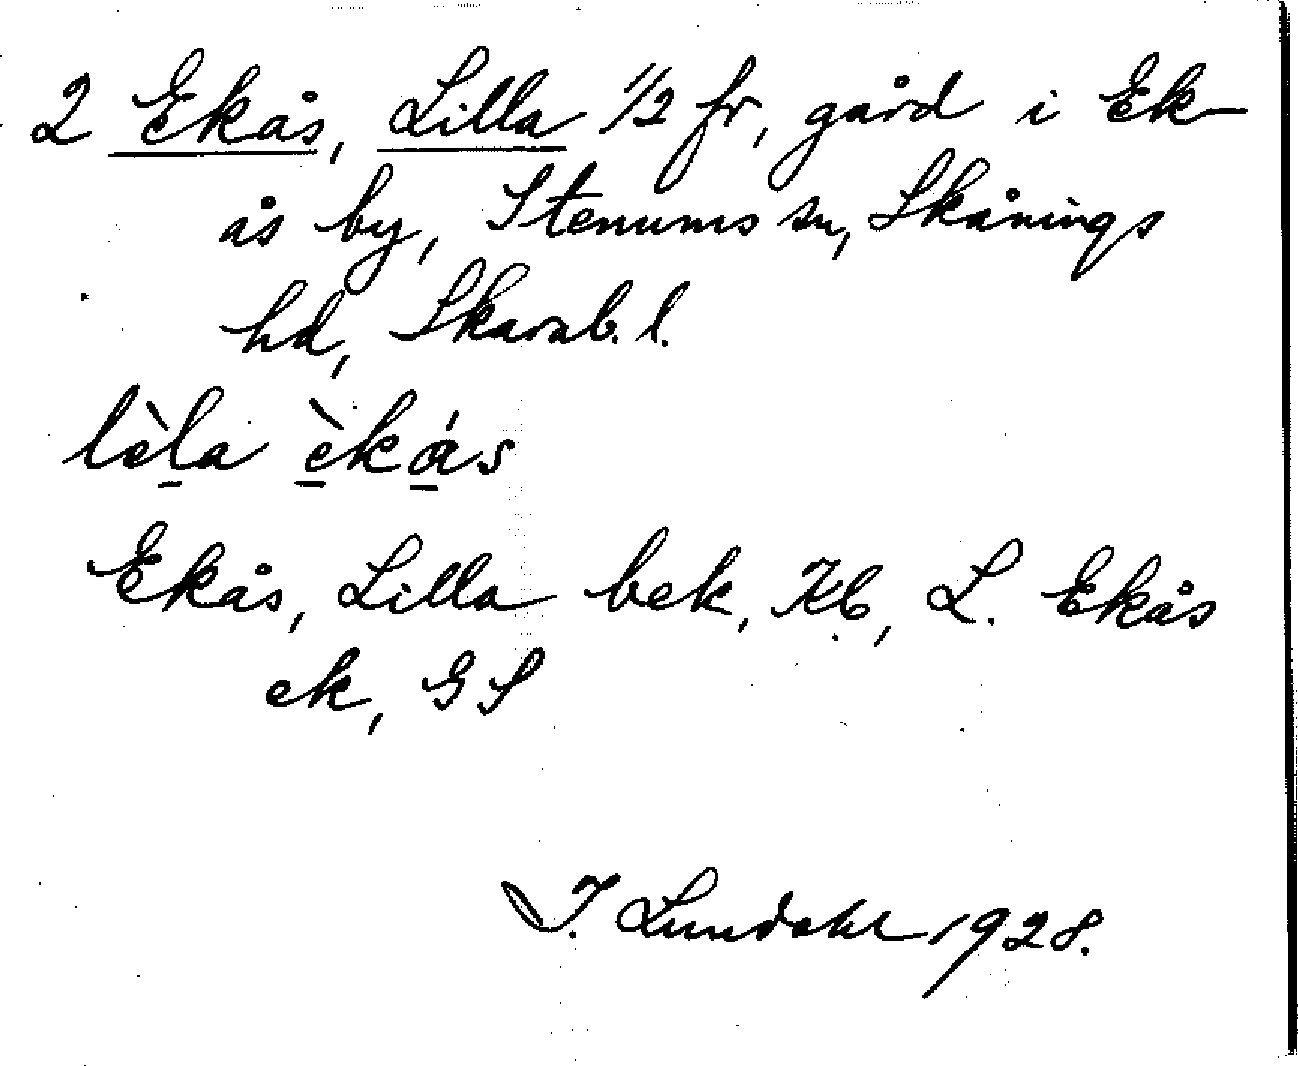 2 Ekås, Lilla 1/2 fr, gård i Ek-
ås by, Stenums sn, Skånings
hd, Skarab. l.
lèla èkás
Ekås, Lilla bek, Kb, L. Ekås
ek, GS
I. Lundahl 1928.